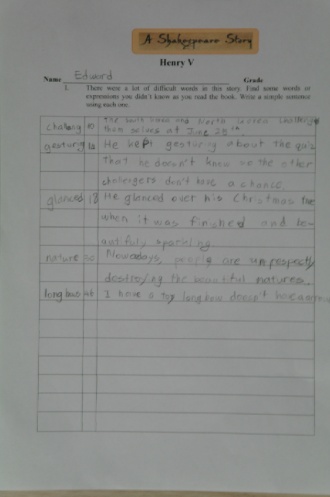 A Shakespeare Story
Henry V
Name Edward Grade
1. There were a lot of difficult words in this story. Find some words or
expressions you didn't know as you read the book. Write a simple sentence
using each one.
challeng 10 The South Korea and North Korea challenge
their selves at June 25th
gesturing 16 He kept gesturing about the quiz
That he doesn't know so the other
challengers don't have a chance.
glanced 18 He glanced over his Christmas tree
when it was finished and be-
autifuly sparkling
nature 20 Nowadays, people are unrespectly
destroying the beautiful natures.
long bow I have a toy long bow doesn't have